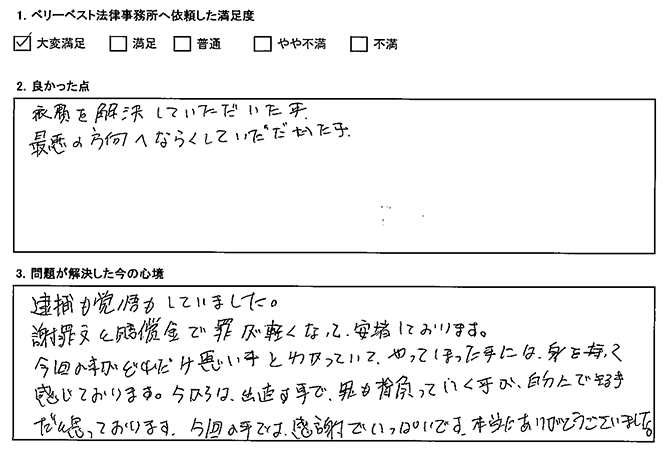 1. ベリーベスト法律事務所へ依頼した満足度
大変満足 満足 普通 やや不満 不満
2. 良かった点
衣類を解決していただいた事.
最悪の方向へならくしていただけた事.
3. 問題が解決した今の心境
逮捕も覚悟もしていました。
謝罪文と賠償金で罪が軽くなって、安堵しております。
今回の事がどれだけ悪い事とわかっていて、やってしまった事には、身を持って
感じております。今からは、出直す事で、罪も背負っていく事が、自分にできる事
だと思っております。今回の事では、感謝でいっぱいです。本当にありがとうございました。